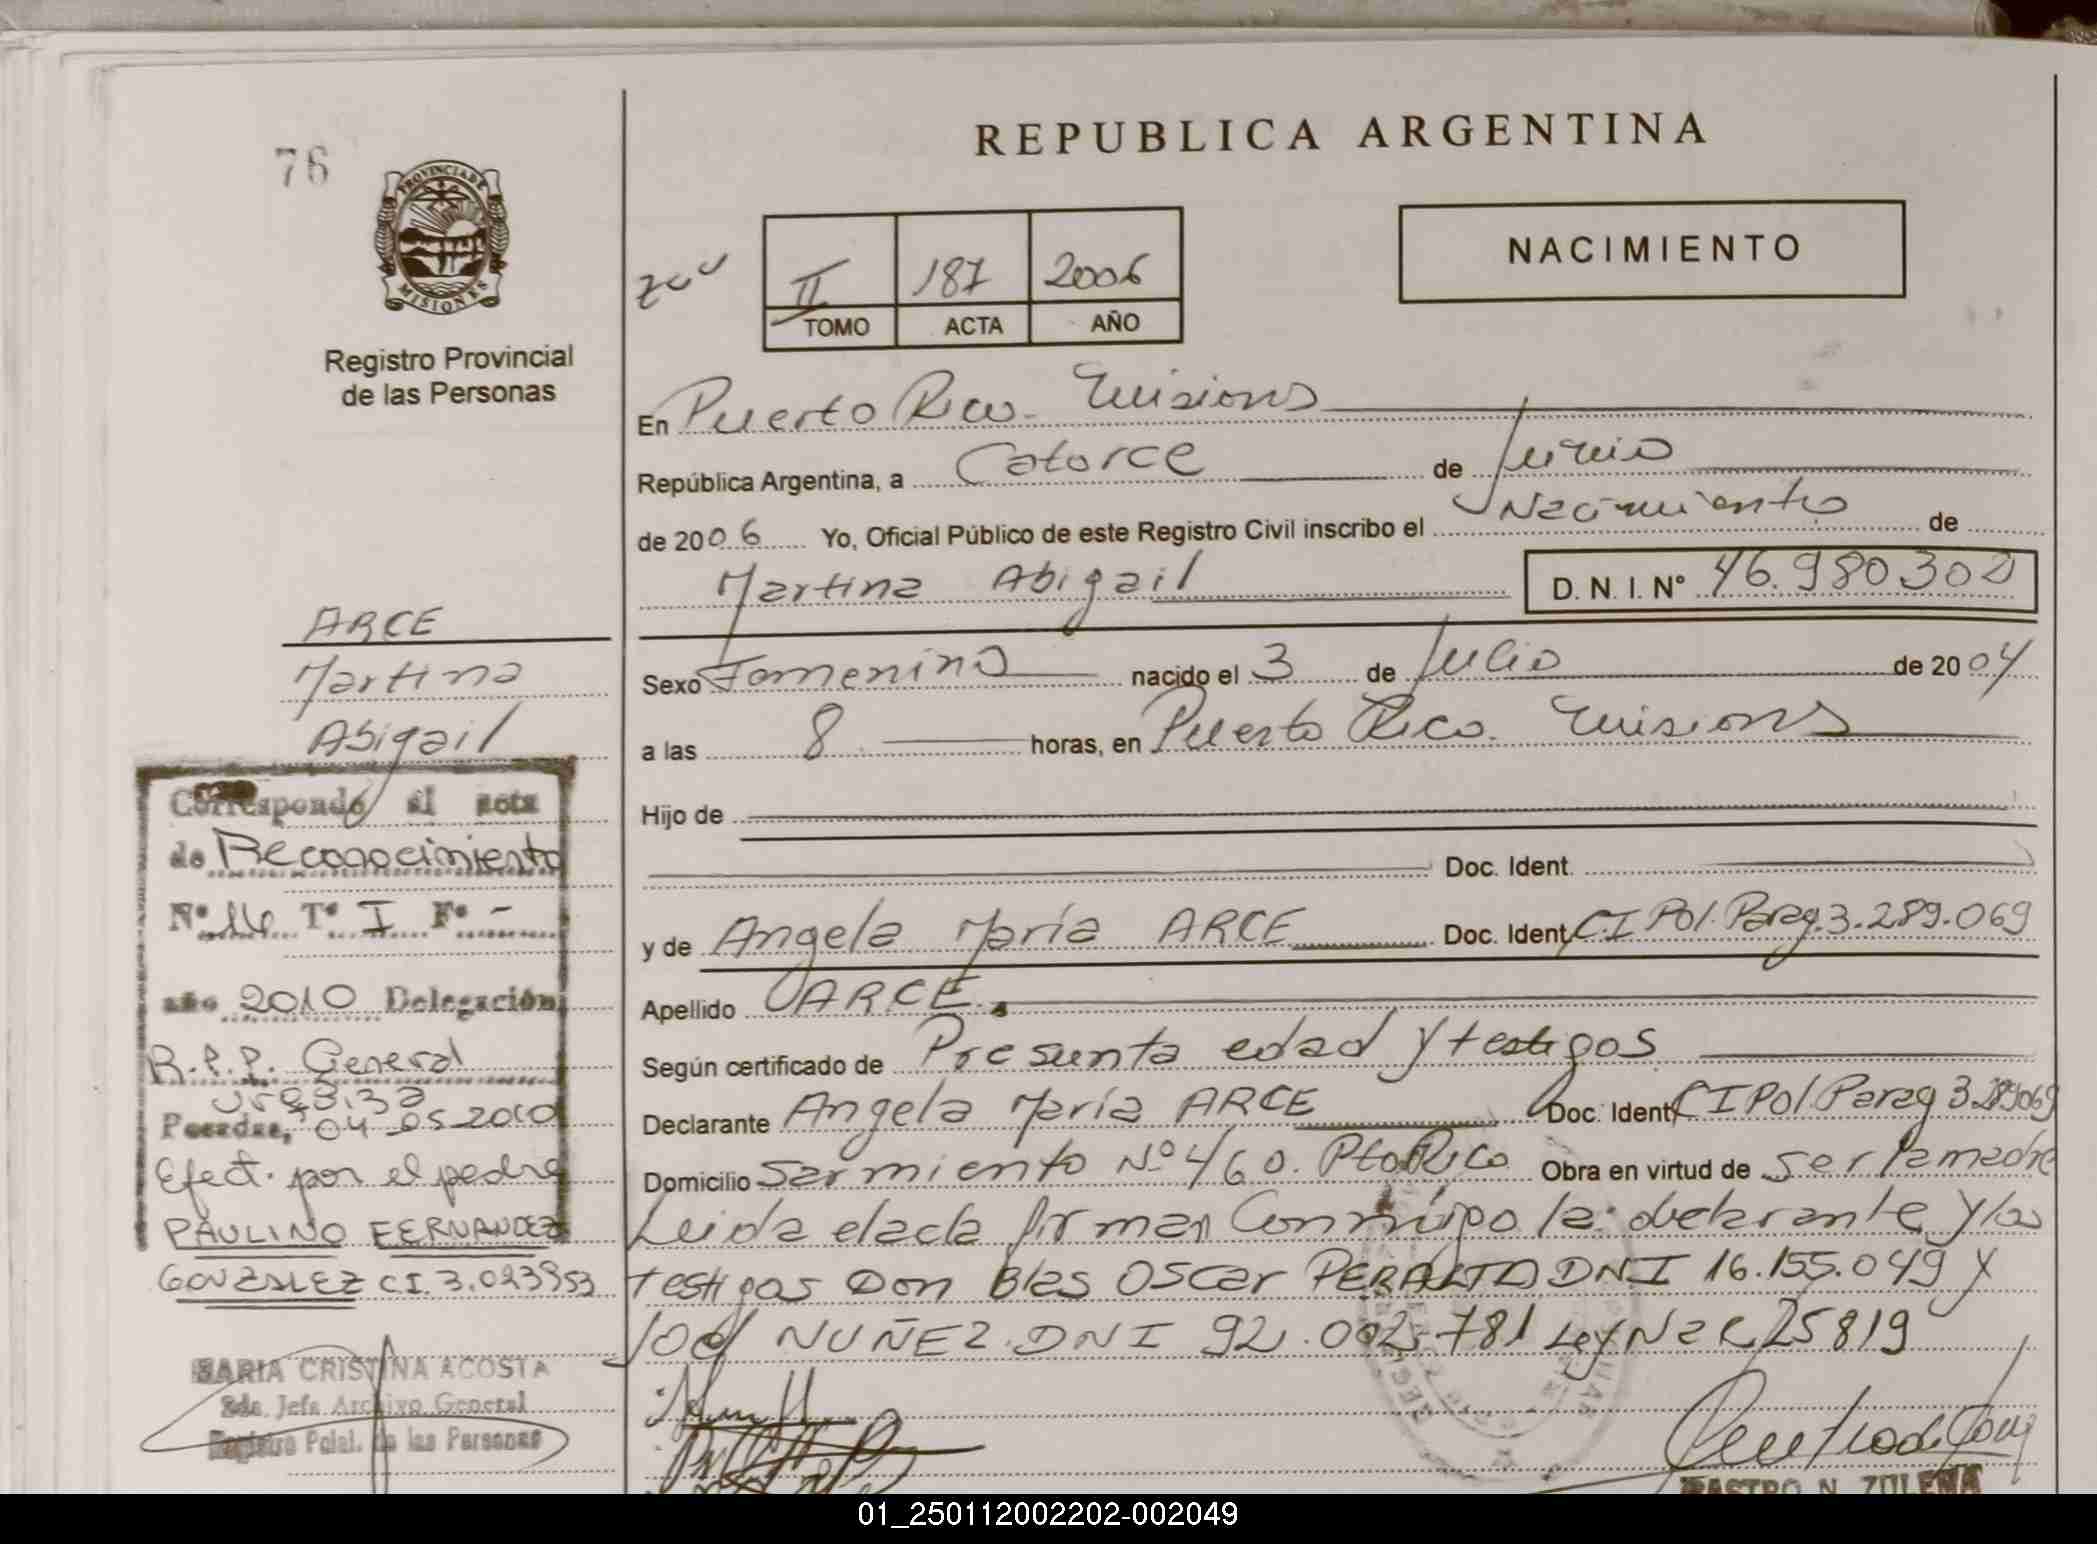 76
PROVINCIA DE
MISIONES
Registro Provincial
de las Personas
REPUBLICA ARGENTINA
NACIMIENTO
II 187 2006
TOMO ACTA AÑO
En Puerto Rico. Misiones
República Argentina, a Catorce de Junio
de 2006 Yo, Oficial Público de este Registro Civil inscribo el Nacimiento de
Martina Abigail D. N. I. N° 46.980.302
Sexo Femenino nacido el 3 de Julio de 2004
a las 8 horas, en Puerto Rico. Misiones
Hijo de
Doc. Ident.
y de Angela María ARCE Doc. Ident. C.I Pol. Parag. 3.289.069
Apellido ARCE.
Según certificado de Presunta edad y testigos
Declarante Angela María ARCE Doc. Ident. C I Pol. Parag 3.289069
Domicilio Sarmiento N° 460. Pto Rico Obra en virtud de ser la madre
Leida el acta firman Conmigo la declarante y los
testigos Don Blas Oscar PERALTA DNI 16.155.049 y
NUÑEZ. DNI 92.002.781 Ley Nac 25819
ARCE
Martina
Abigail
Corresponde al acta
de Reconocimiento
N° 16 T° I F° -
año 2010 Delegación
R.P.P. General
Posadas, 04 05 2010
Efect. por el padre
PAULINO FERNANDEZ
GONZALEZ C.I. 3.023953
MARIA CRISTINA ACOSTA
Sda. Jefa Archivo General
Registro Pcial. de las Personas
CASTRO N. ZULEMA
01_250112002202-002049